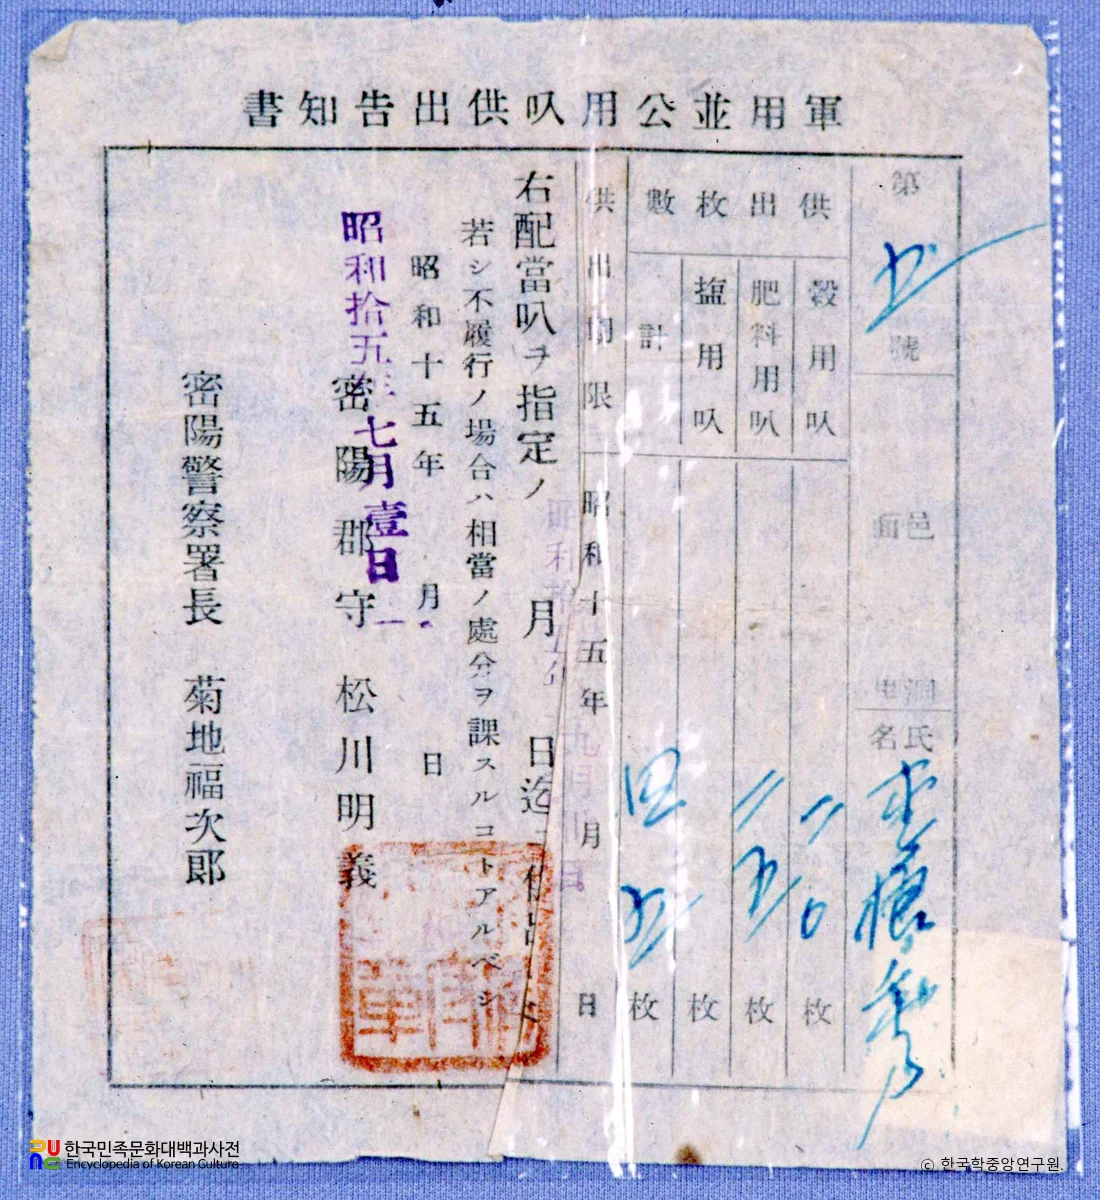 軍用並公用叺供出告知書
第 號
邑面
洞里
氏名
供出枚數
穀用叺 枚
肥料用叺 枚
塩用叺 枚
計 枚
供出期限 昭和十五年 月 日
右配當叺ヲ指定ノ 月 日迄ニ
若シ不履行ノ場合ハ相當ノ處分ヲ課スルコトアルベシ
昭和十五年 月 日
昭和拾五年七月壹日
密陽郡守 松川明義
密陽警察署長 菊地福次郎
한국민족문화대백과사전
Encyclopedia of Korean Culture
ⓒ 한국학중앙연구원.